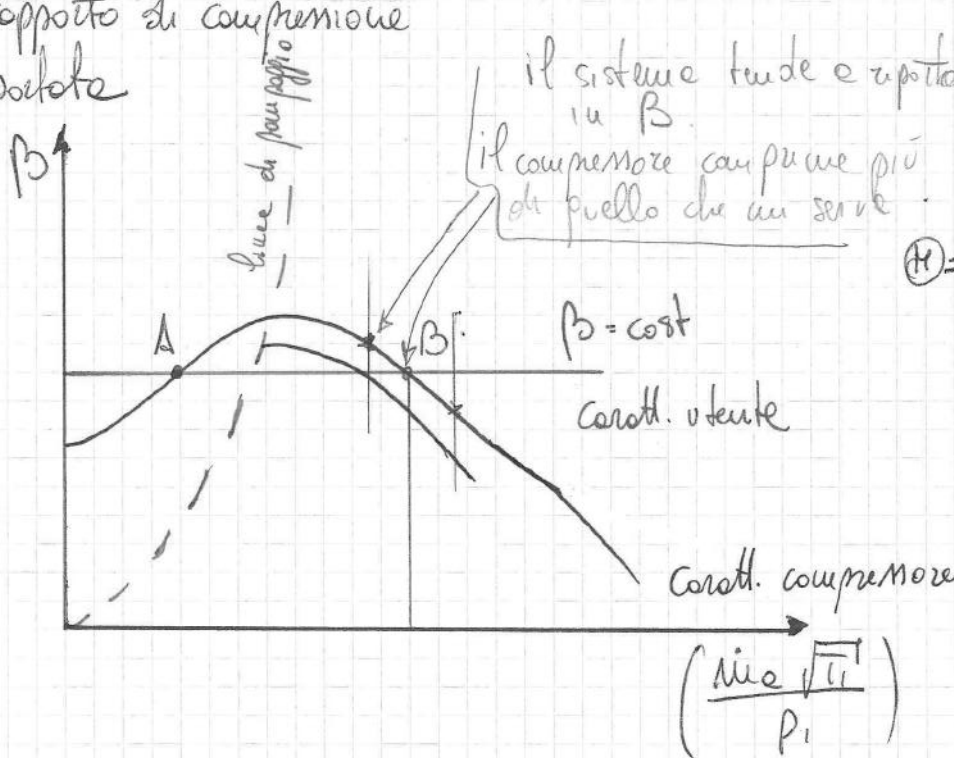 opporto di compressione
portata
linea di pompaggio
il sistema tende a riporta
in B.
il compressore comprime più
di quello che mi serve.
β
A
B
β = cost
Caratt. utente
Caratt. compressore
(ṁa √T1 / p1)